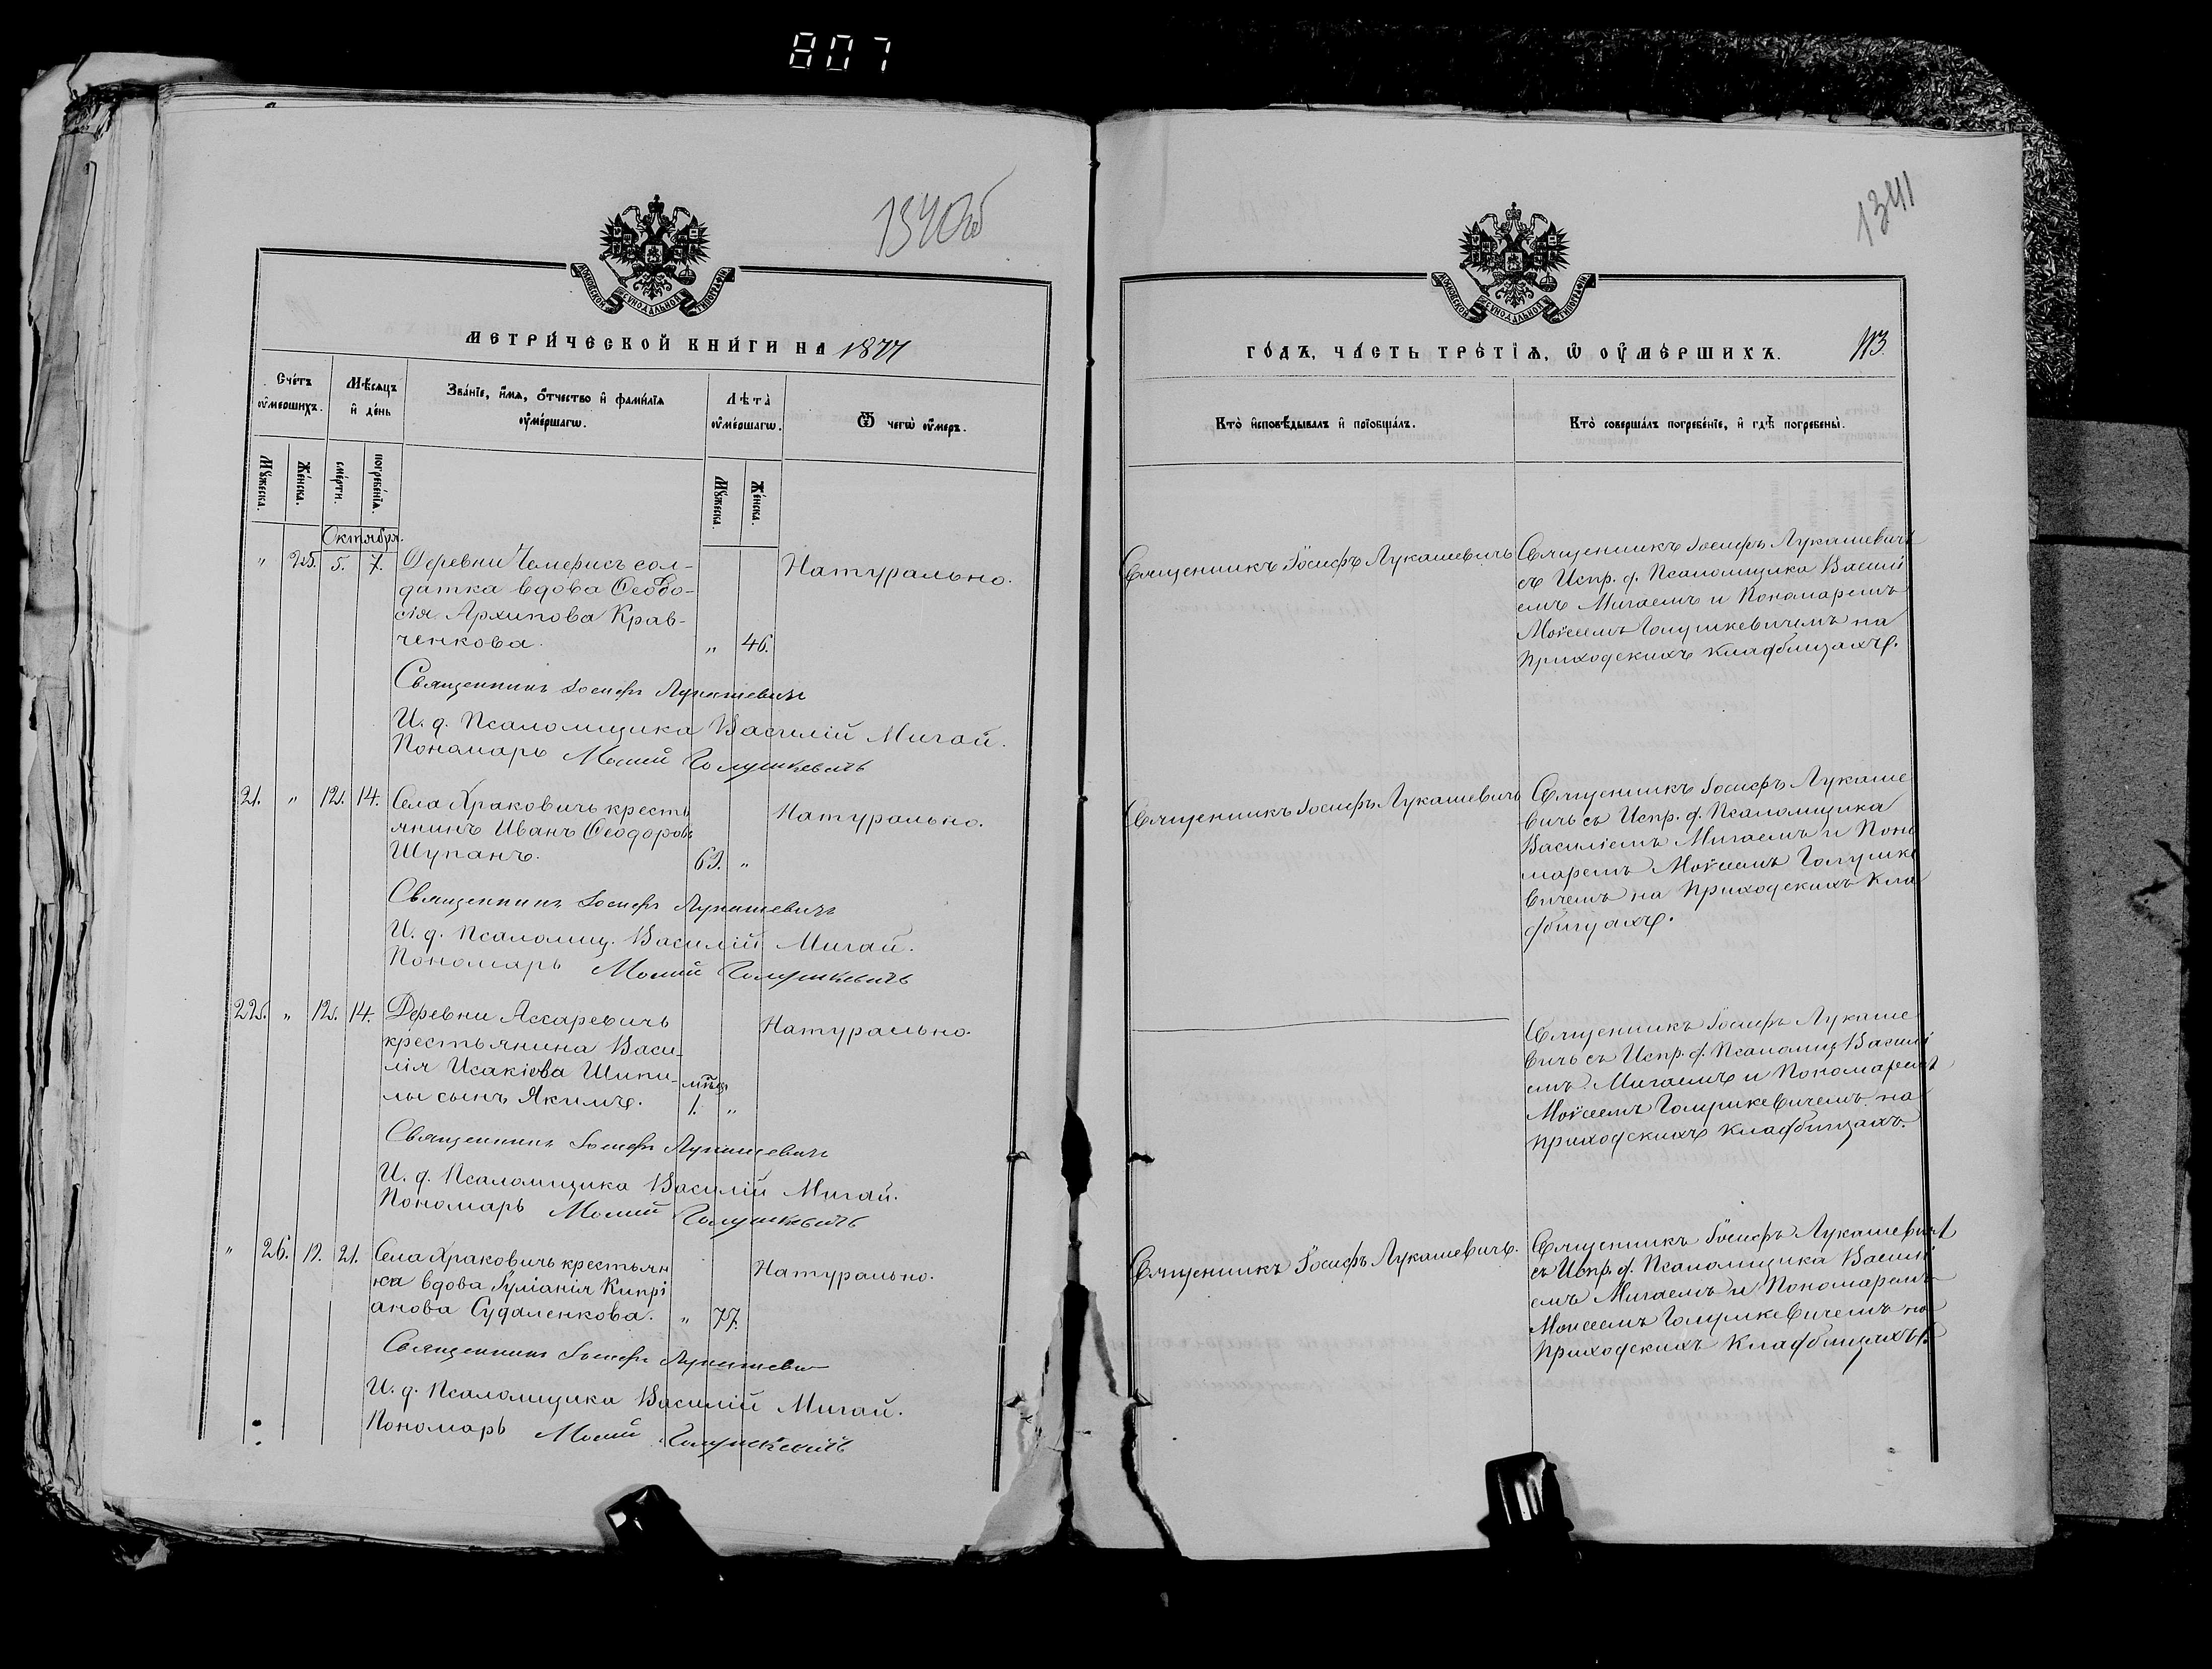 807
1340об
МОСКОВСКОЙ СѴНОДАЛЬНОЙ ТИПОГРАФІИ
МЕТРИ́ЧЕСКОЙ КНИ́ГИ НА 1877
Сче́тъ ᲂу҆ме́ршихъ.
Мѣ́сяцъ и҆ де́нь
Зва́нїе, и҆́мѧ, ѻ҆́тчество и҆ фами́лїѧ ᲂу҆ме́ршагѡ.
Лѣ́та ᲂу҆ме́ршагѡ.
Ѿ чегѡ̀ ᲂу҆́меръ.
Мꙋ́жеска.
Же́нска.
сме́рти.
погребе́нїѧ.
Мꙋ́жеска.
Же́нска.
Октября.
" 25. 5. 7. Деревни Чемерисъ сол-
датка вдова Ѳеодо-
сія Архипова Крав-
ченкова. " 46.
Натурально.
Священникъ Іосифъ Лукашевичъ
И. д. Псаломщика Василій Мигай.
Пономарь Моисей Голушкевичъ
21. " 12. 14. Села Храковичъ кресть
янинъ Иванъ Ѳеодоровъ
Шупанъ. 63. "
Натурально.
Священникъ Іосифъ Лукашевичъ
И. д. Псаломщ. Василій Мигай.
Пономарь Моисей Голушкевичъ
22. " 12. 14. Деревни Асаревичъ
крестьянина Васи-
лія Исакіева Шипи-
лы сынъ Якимъ. мѣсц. 1. "
Натурально.
Священникъ Іосифъ Лукашевичъ
И. д. Псаломщика Василій Мигай.
Пономарь Моисей Голушкевичъ
" 26. 19. 21. Села Храковичъ крестьян
ка вдова Іуліанія Кипрі
анова Судаленкова. " 77.
Натурально.
Священникъ Іосифъ Лукашевич
И. д. Псаломщика Василій Мигай.
Пономарь Моисей Голушкевичъ
1341
МОСКОВСКОЙ СѴНОДАЛЬНОЙ ТИПОГРАФІИ
ГО́ДЪ, ЧА́СТЬ ТРЕ́ТІѦ, Ѡ҆ ОУ҆МЕ́РШИХЪ.
113.
Кто̀ и҆сповѣ́дывалъ и҆ прїѡбща́лъ.
Кто̀ соверша́лъ погребе́нїе, и҆ гдѣ̀ погребены̀.
Священникъ Іосифъ Лукашевичъ
Священникъ Іосифъ Лукашевичъ
съ Испр. д. Псаломщика Васили
емъ Мигаемъ и Пономаремъ
Моѵсеемъ Голушкевичемъ на
приходскихъ кладбищахъ.
Священникъ Іосифъ Лукашевичъ
Священникъ Іосифъ Лукаше
вичъ съ Испр. д. Псаломщика
Василіемъ Мигаемъ и Поно
маремъ Моѵсеемъ Голушке
вичемъ на приходскихъ кла
дбищахъ.
Священникъ Іосифъ Лукаше
вичъ съ Испр. д. Псаломщ. Васили
емъ Мигаемъ и Пономаремъ
Моѵсеемъ Голушкевичемъ на
приходскихъ кладбищахъ.
Священникъ Іосифъ Лукашевичъ.
Священникъ Іосифъ Лукашевичъ
съ Испр. д. Псаломщика Васили
емъ Мигаемъ и Пономаремъ
Моисеемъ Голушкевичемъ на
приходскихъ кладбищахъ.